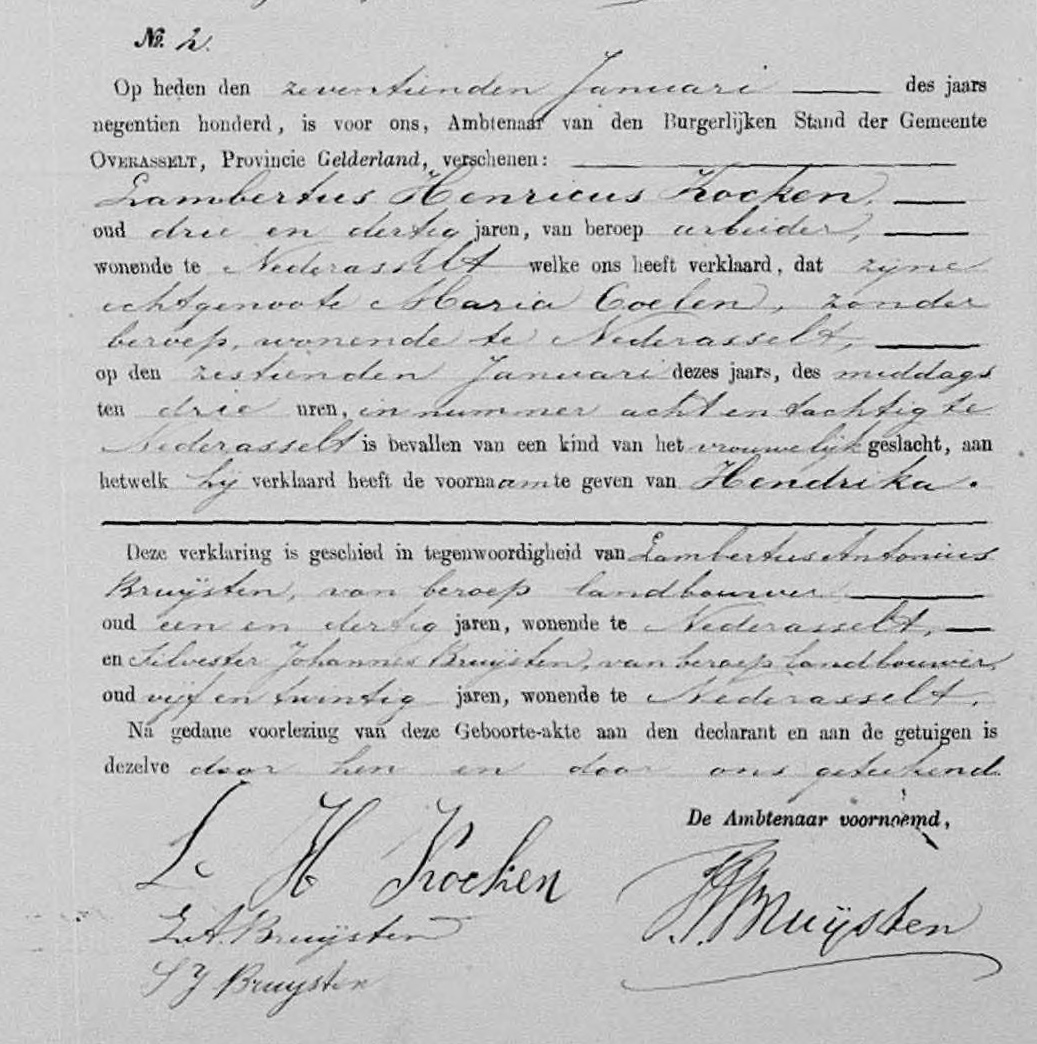 № 2.
Op heden den zeventienden Januari des jaars
negentien honderd, is voor ons, Ambtenaar van den Burgerlijken Stand der Gemeente
OVERASSELT, Provincie Gelderland, verschenen:
Lambertus Henricus Kocken,
oud drie en dertig jaren, van beroep arbeider,
wonende te Nederasselt welke ons heeft verklaard, dat zijne
echtgenoote Maria Coelen, zonder
beroep, wonende te Nederasselt,
op den zestienden Januari dezes jaars, des middags
ten drie uren, in nummer acht en tachtig te
Nederasselt is bevallen van een kind van het vrouwelijk geslacht, aan
hetwelk hij verklaard heeft de voornaam te geven van Hendrika.
Deze verklaring is geschied in tegenwoordigheid van Lambertus Antonius
Bruijsten, van beroep landbouwer
oud een en dertig jaren, wonende te Nederasselt,
en Silvester Johannes Bruijsten, van beroep landbouwer,
oud vijf en twintig jaren, wonende te Nederasselt.
Na gedane voorlezing van deze Geboorte-akte aan den declarant en aan de getuigen is
dezelve door hen en door ons geteekend.
De Ambtenaar voornoemd,
L. H Kocken
L.A. Bruijsten
S J Bruijsten
Bruijsten